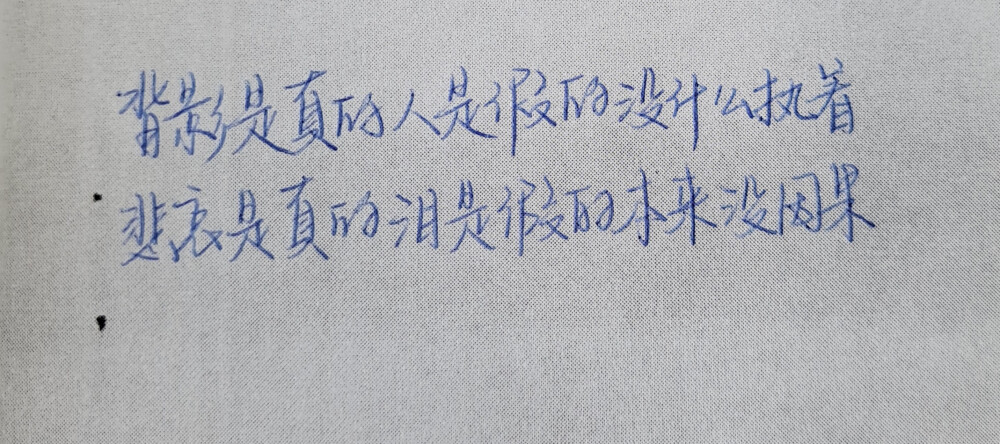 背影是真的人是假的没什么执着
悲哀是真的泪是假的本来没因果